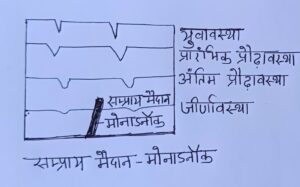 युवावस्था
प्रारंभिक प्रौढ़ावस्था
अंतिम प्रौढ़ावस्था
जीर्णावस्था
सम्प्राय मैदान
मोनाडनॉक
सम्प्राय मैदान - मोनाडनॉक